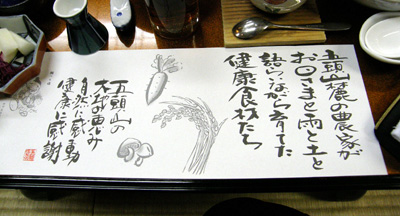 五頭山麓の農家が
お日さまと雨と土と
語らいながら育てた
健康食材たち
五頭山の
大地の恵み
自然に感動
健康に感謝